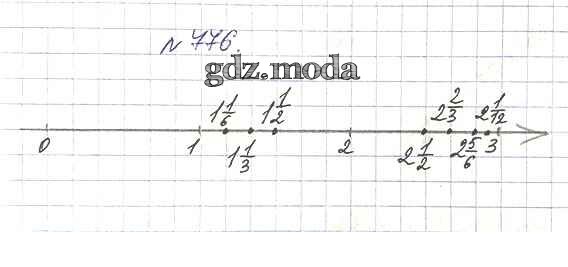 № 776.
gdz.moda
1 1/6 1 1/2 2 2/3 2 1/12
0 1 1 1/3 2 2 1/2 2 5/6 3